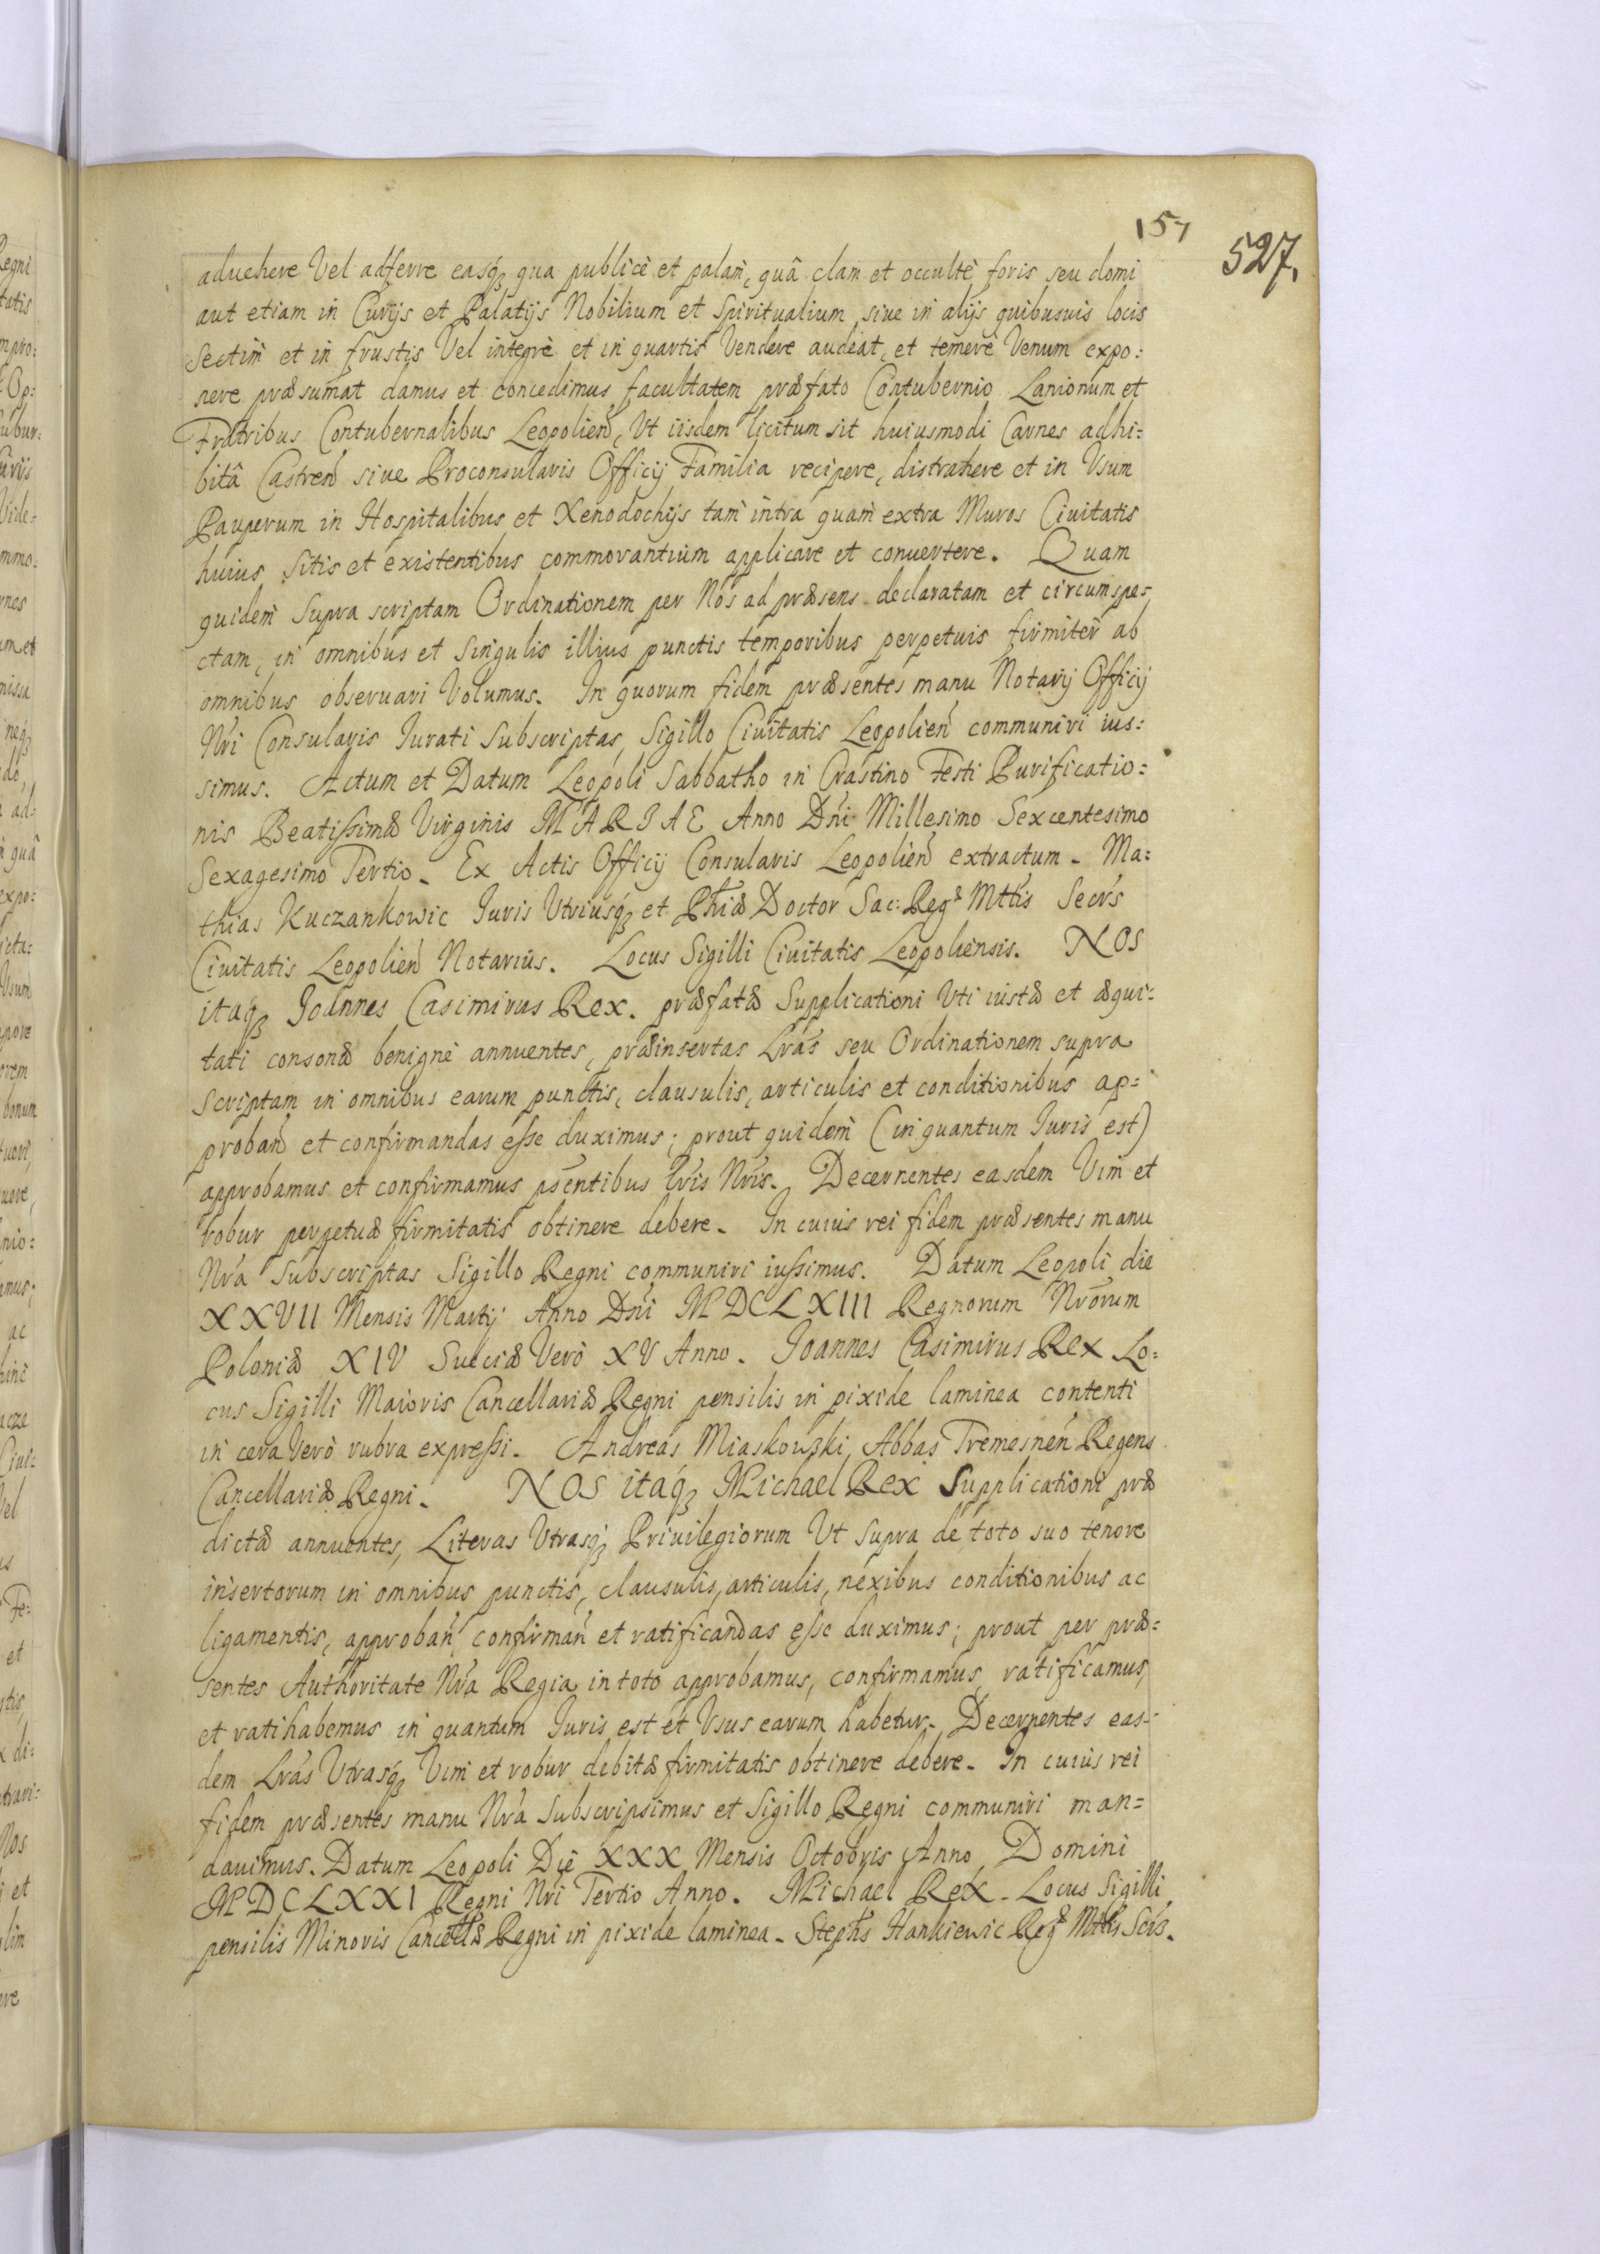 157
527.
aduehere Vel adferre easq₃ qua publicè et palam̀, quâ clam et occultè foris seu domi
aut etiam in Curijs et Palatijs Nobilium et Spiritualium, siue in alijs quibusuis locis
Sectim̀ et in frustis Vel integrè et in quartis Vendere audeat, et temerè Venum expo:
nere præsumat damus et concedimus facultatem præfato Contubernio Lanionum et
Fratribus Contubernalibus Leopolien̄, Vt iisdem licitum sit huiusmodi Carnes adhi:
bitâ Castren̄ siue Proconsularis Officij Familia recipere, distrahere et in Vsum
Pauperum in Hospitalibus et Xenodochijs tam̀ intra quam̀ extra Muros Ciuitatis
huius sitis et existentibus commorantium applicare et conuertere. Quam
quidem̀ supra scriptam Ordinationem per Nos ad præsens declaratam et circumspe:
ctam, in omnibus et singulis illius punctis temporibus perpetuis firmiter̀ ab
omnibus obseruari Volumus. In quorum fidem præsentes manu Notarij Officij
Nri Consularis Iurati Subscriptas, Sigillo Ciuitatis Leopolien̄ communiri ius:
simus. Actum et Datum Leopoli Sabbatho in Crastino Festi Purificatio:
nis Beatissimæ Virginis MARIAE Anno Dn̄i Millesimo Sexcentesimo
Sexagesimo Tertio. Ex Actis Officij Consularis Leopolien̄ extractum. Ma:
thias Kuczankowic Iuris Vtriusq₃ et Phiæ Doctor Sac: Regæ Mttis Secrs
Ciuitatis Leopolien̄ Notarius. Locus Sigilli Ciuitatis Leopoliensis. NOS
itaq₃ Joannes Casimirus Rex. præfatæ Supplicationi Vti iustæ et æqui:
tati consonæ benignè annuentes, præinsertas Lras seu Ordinationem supra
scriptam in omnibus earum punctis, clausulis, articulis et conditionibus ap:
proban̄ et confirmandas esse duximus; prout quidem̀ (in quantum Iuris est)
approbamus et confirmamus pn̄tibus lris Nris. Decernentes easdem Vim et
robur perpetuæ firmitatis obtinere debere. In cuius rei fidem præsentes manu
Nra Subscriptas Sigillo Regni communiri iussimus. Datum Leopoli die
XXVII Mensis Martij Anno Dn̄i MDCLXIII Regnorum Nrorum
Poloniæ XIV Sueciæ Verò XV Anno. Joannes Casimirus Rex Lo:
cus Sigilli Maioris Cancellariæ Regni pensilis in pixide laminea contenti
in cera Verò rubra expressi. Andreas Miaskowski, Abbas Tremesnen̄ Regens
Cancellariæ Regni. NOS itaq₃ Michael Rex Supplicationi præ
dictæ annuentes, Literas Vtrasq₃ Priuilegiorum Vt supra de toto suo tenore
insertorum in omnibus punctis, clausulis, articulis, nexibus conditionibus ac
ligamentis, approban̄ confirman̄ et ratificandas esse duximus; prout per præ:
sentes Authoritate Nra Regia in toto approbamus, confirmamus, ratificamus,
et ratihabemus in quantum Iuris est et Vsus earum habetur. Decernentes eas:
dem Lras Vtrasq₃ Vim et robur debitæ firmitatis obtinere debere. In cuius rei
fidem præsentes manu Nra Subscripsimus et Sigillo Regni communiri man:
dauimus. Datum Leopoli Die XXX Mensis Octobris Anno Domini
MDCLXXI Regni Nri Tertio Anno. Michael Rex. Locus Sigilli
pensilis Minoris Cancellæ Regni in pixide laminea. Stephs Hankiewic Regæ Mttis Scrs.